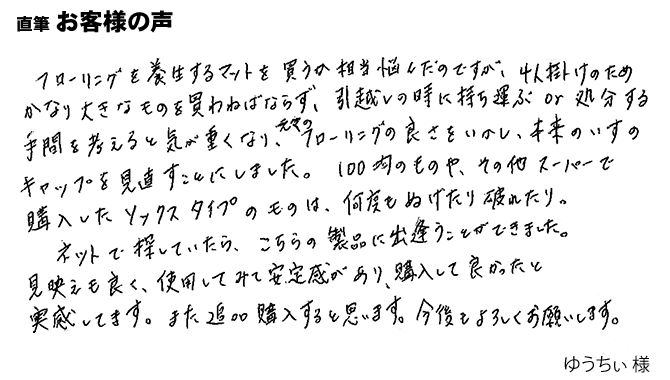 直筆 お客様の声
フローリングを養生するマットを買うか相当悩んだのですが、4人掛けのため
かなり大きなものを買わねばならず、引越しの時に持ち運ぶ or 処分する
手間を考えると気が重くなり、元々のフローリングの良さをいかし、本来のいすの
キャップを見直すことにしました。100均のものや、その他スーパーで
購入したソックスタイプのものは、何度もぬげたり破れたり。
ネットで探していたら、こちらの製品に出逢うことができました。
見映えも良く、使用してみて安定感があり、購入して良かったと
実感してます。また追加購入すると思います。今後もよろしくお願いします。
ゆうちぃ 様